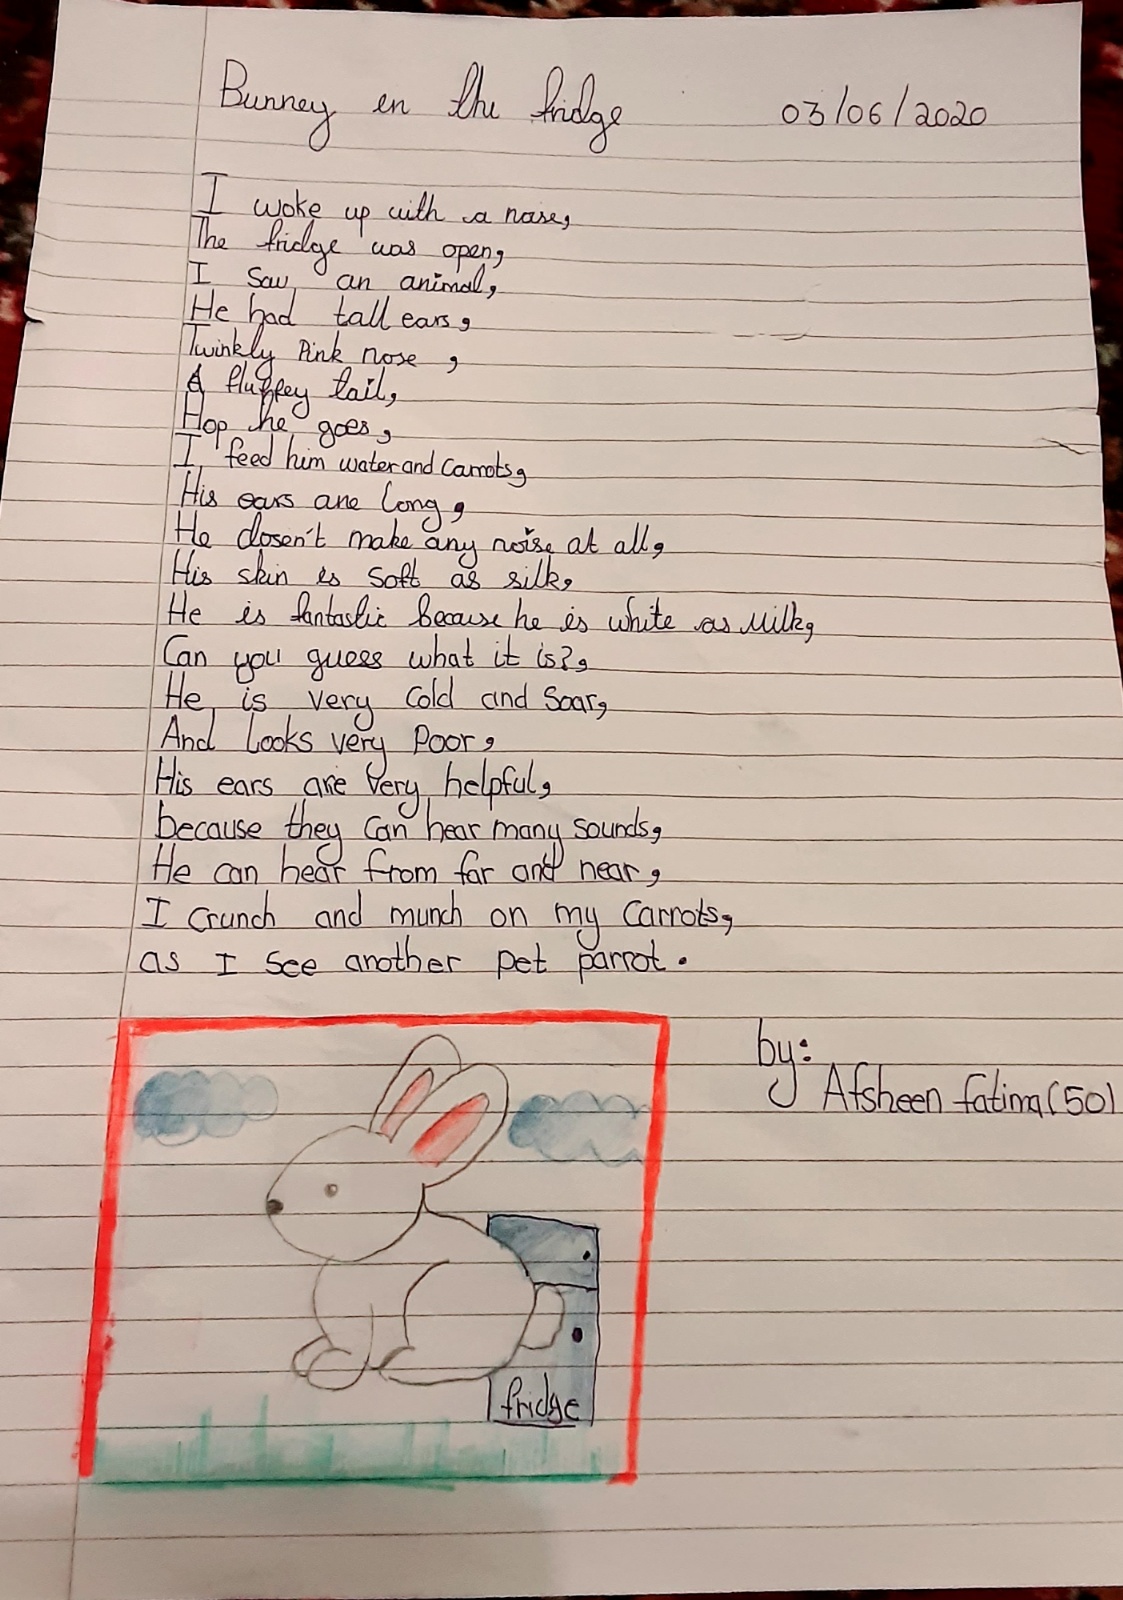 Bunney in the fridge 03/06/2020
I woke up with a nose,
The fridge was open,
I saw an animal,
He had tall ears,
Twinkly Pink nose,
A fluffey tail,
Hop he goes,
I feed him water and carrots,
His ears are long,
He dosen't make any noise at all,
His skin is soft as silk,
He is fantastic because he is white as Milk,
Can you guess what it is?,
He is very cold and Soar,
And Looks very Poor,
His ears are very helpful,
because they can hear many sounds,
He can hear from far and near,
I crunch and munch on my carrots,
as I see another pet parrot.
by:
Afsheen fatima (50)
fridge